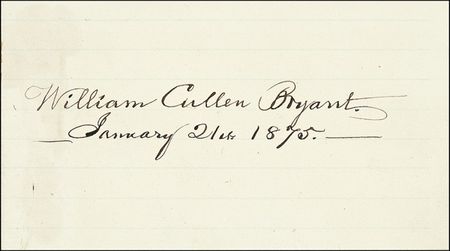 William Cullen Bryant.
January 21st 1875.